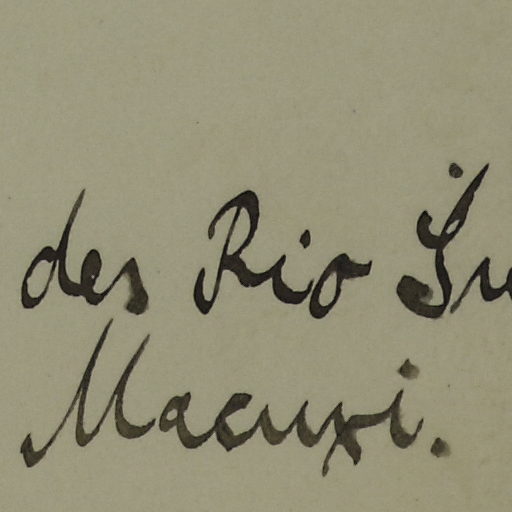 des Rio
Macuxi.